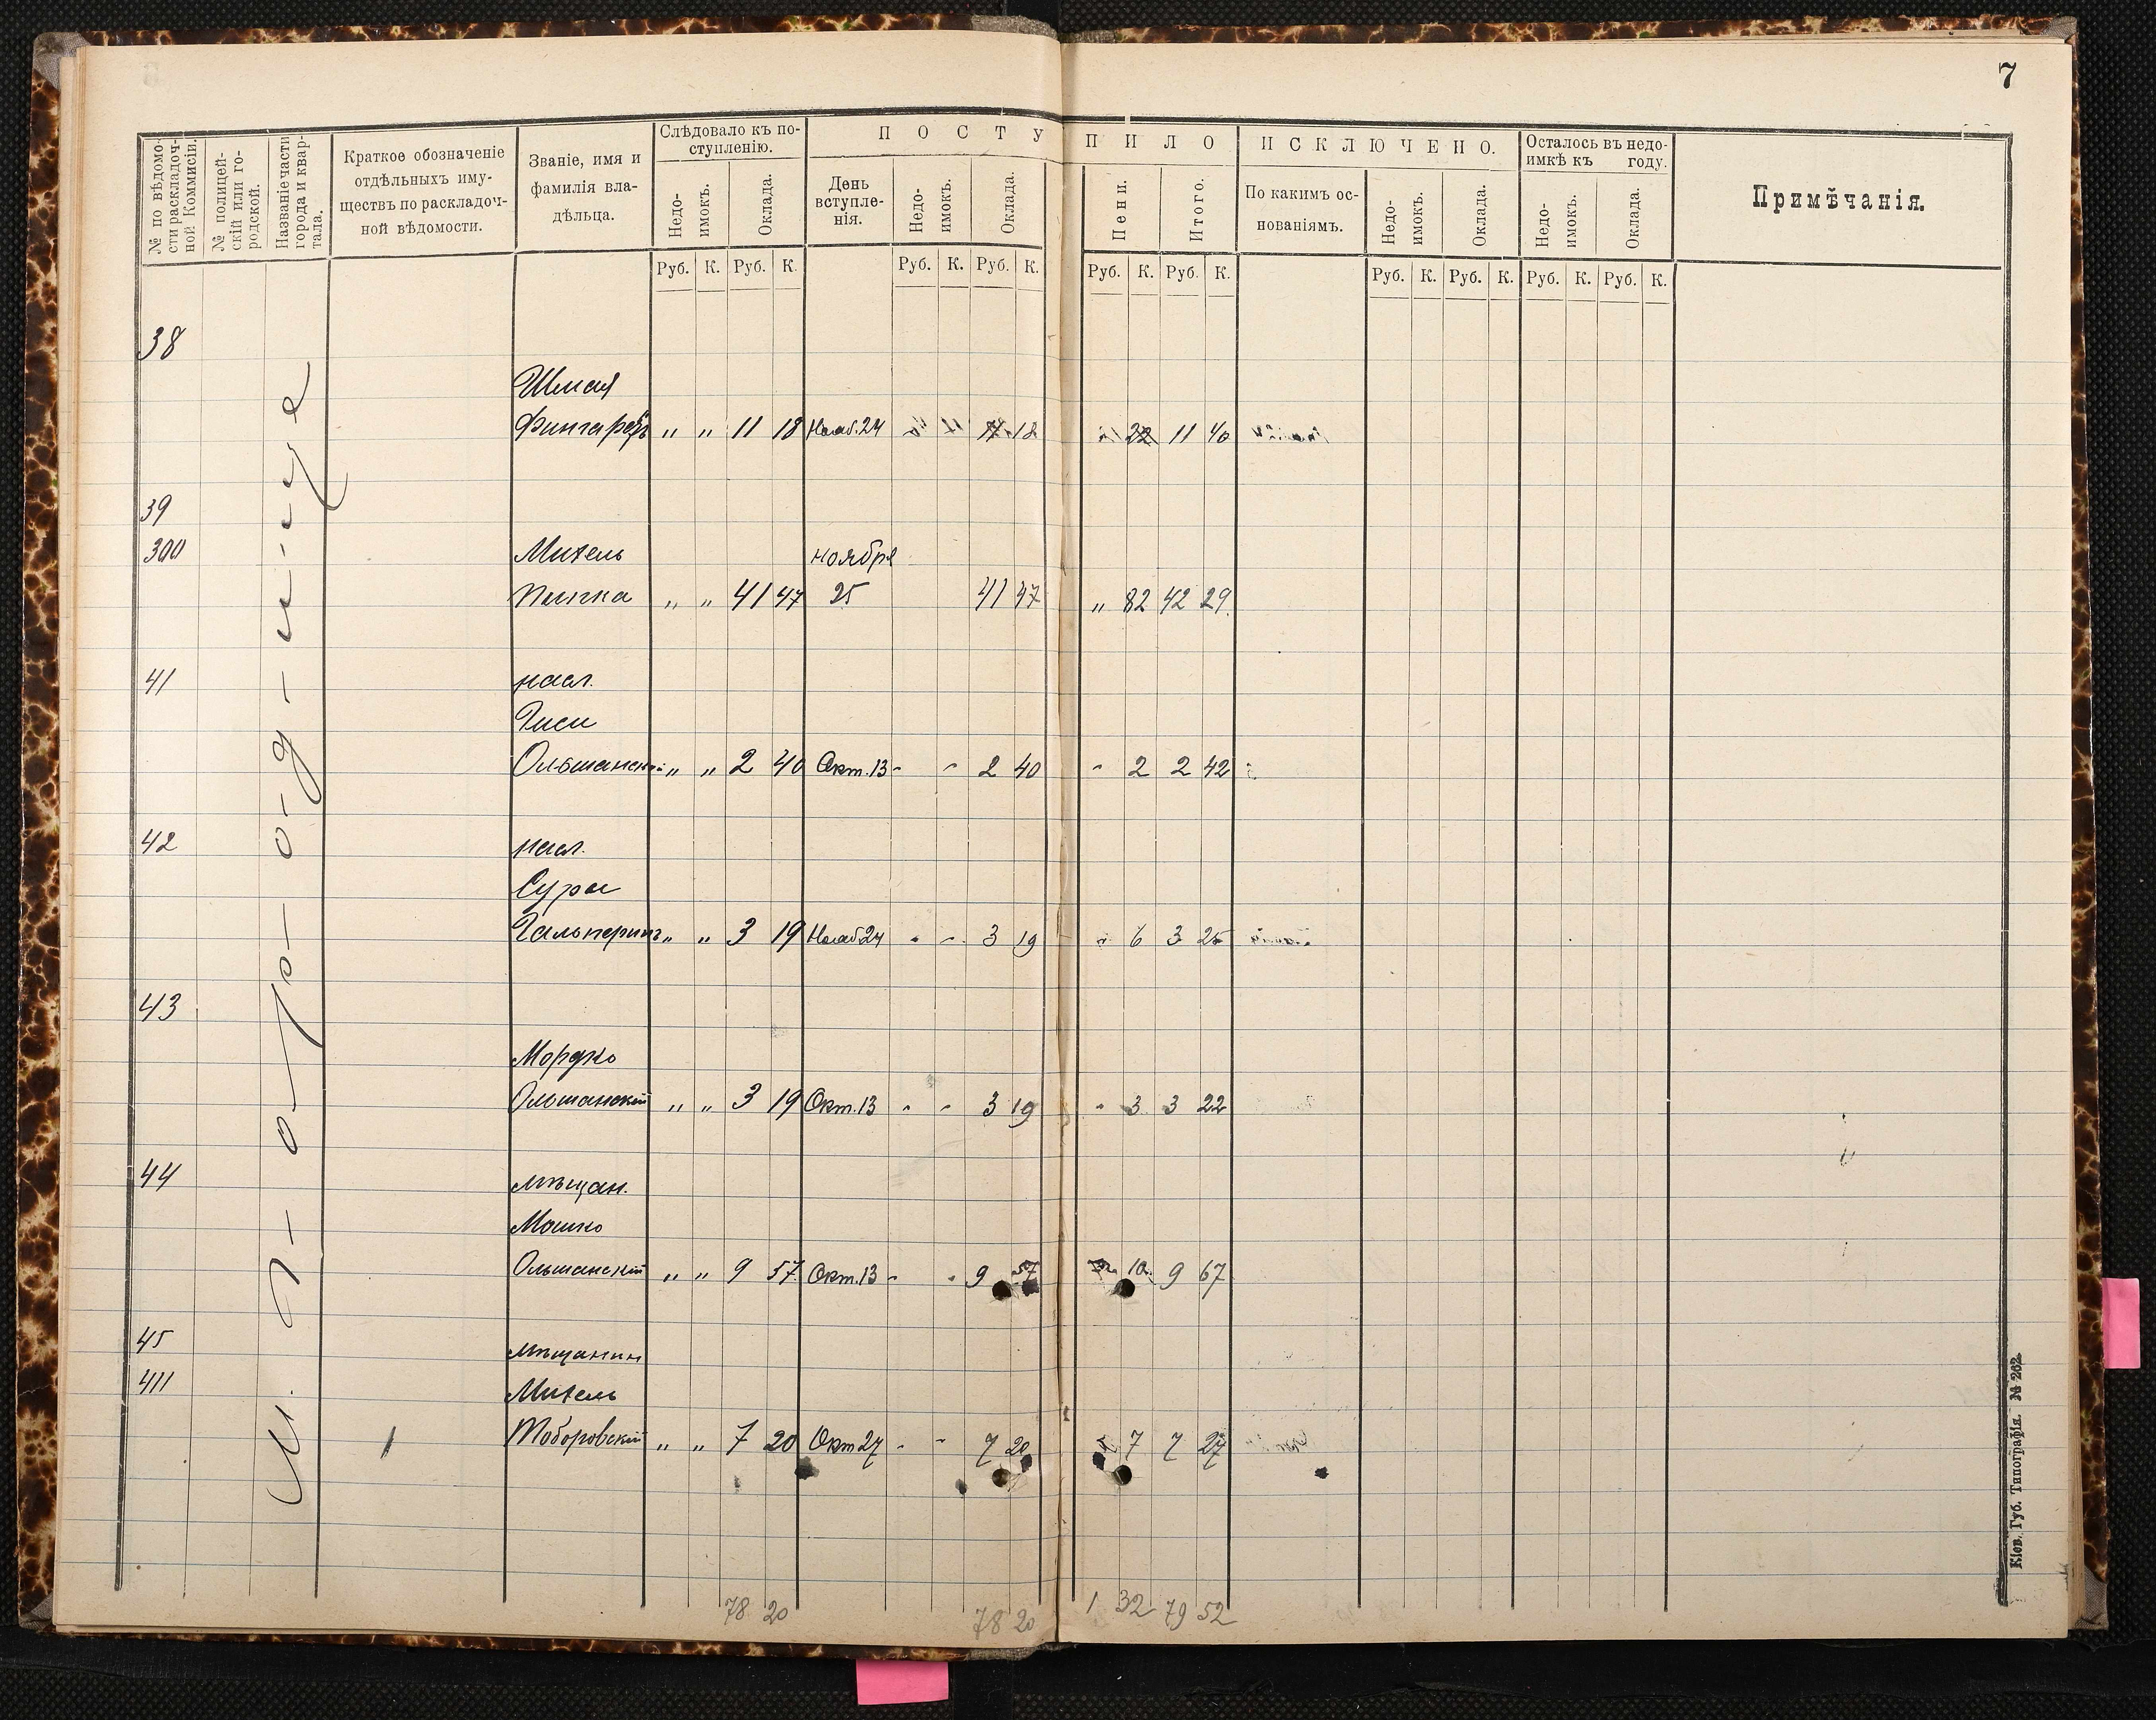 7
№ по вѣдомости раскладочной Коммисіи.
№ полицейскій или городской.
Названіе части города и квартала.
Краткое обозначеніе отдѣльныхъ имуществъ по раскладочной вѣдомости.
Званіе, имя и фамилія владѣльца.
Слѣдовало къ поступленію.
Недоимокъ.
Оклада.
ПОСТУПИЛО
День вступленія.
Недоимокъ.
Оклада.
Пени.
Итого.
ИСКЛЮЧЕНО.
По какимъ основаніямъ.
Недоимокъ.
Оклада.
Осталось въ недоимкѣ къ году.
Недоимокъ.
Оклада.
Примѣчанія.
Руб. К. Руб. К. Руб. К. Руб. К. Руб. К. Руб. К. Руб. К. Руб. К. Руб. К. Руб. К.
м. Городище
38
Шмая
„ „ 11 18 Нояб. 24 11 18 22 11 40
39
300 Михель ноября
„ „ 41 47 25 41 47 „ 82 42 29
41 насл.
Ольшанской „ „ 2 40 Окт. 13 - - 2 40 - 2 2 42
42 насл.
Суры
Гальперинъ „ „ 3 19 Нояб 24 - - 3 19 - 6 3 25
43
Мордко
Ольшанскій „ „ 3 19 Окт. 13 - - 3 19 - 3 3 22
44 мѣщан.
Мошко
Ольшанскій „ „ 9 57 Окт. 13 - - 9 57 10 9 67
45 мѣщанин
411 Михель
Тоборовскій „ „ 7 20 Окт 27 - - 7 20 7 7 27
78 20 78 20 1 32 79 52
Кіев. Губ. Типографія. № 262.